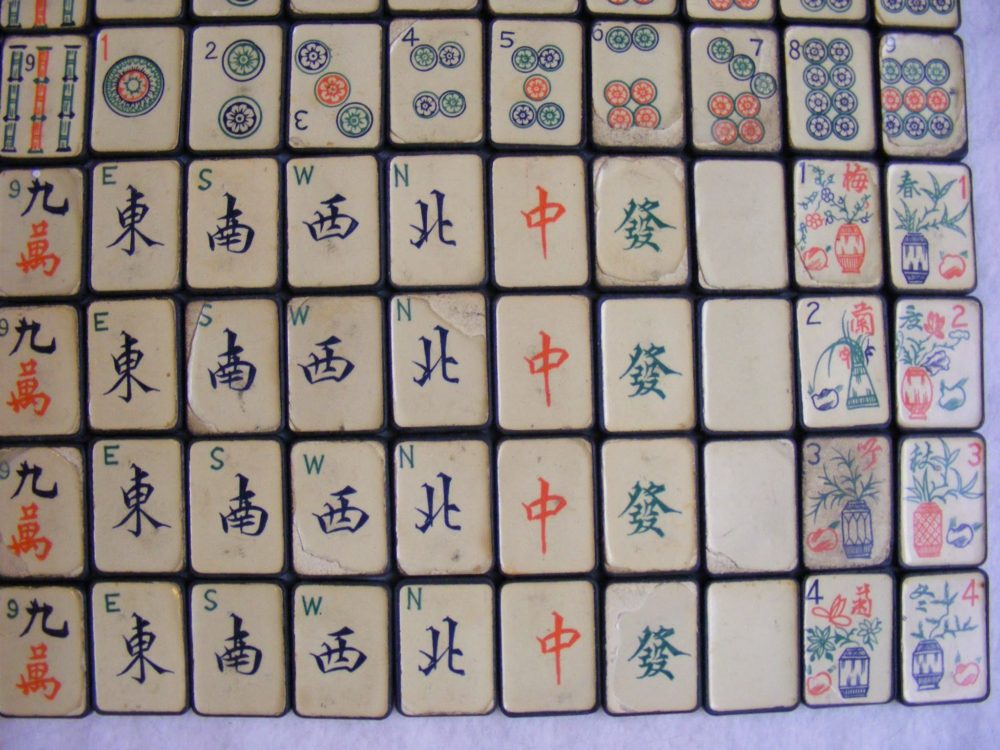 9 1 2 3 4 5 6 7 8 9
9 九萬 E 東 S 南 W 西 N 北 中 發 1 梅 春 1
9 九萬 E 東 S 南 W 西 N 北 中 發 2 蘭 夏 2
9 九萬 E 東 S 南 W 西 N 北 中 發 3 竹 秋 3
9 九萬 E 東 S 南 W 西 N 北 中 發 4 菊 冬 4